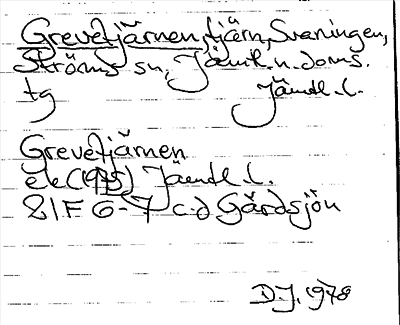 Grevetjärnen, tjärn, Svaningen,
Ströms sn, Jämtl. n. doms.
tg Jämtl. l.
Grevetjärnen
ek (1975) Jämtl l.
21F 6-7 c-d Gärdsjön
D.J. 1978